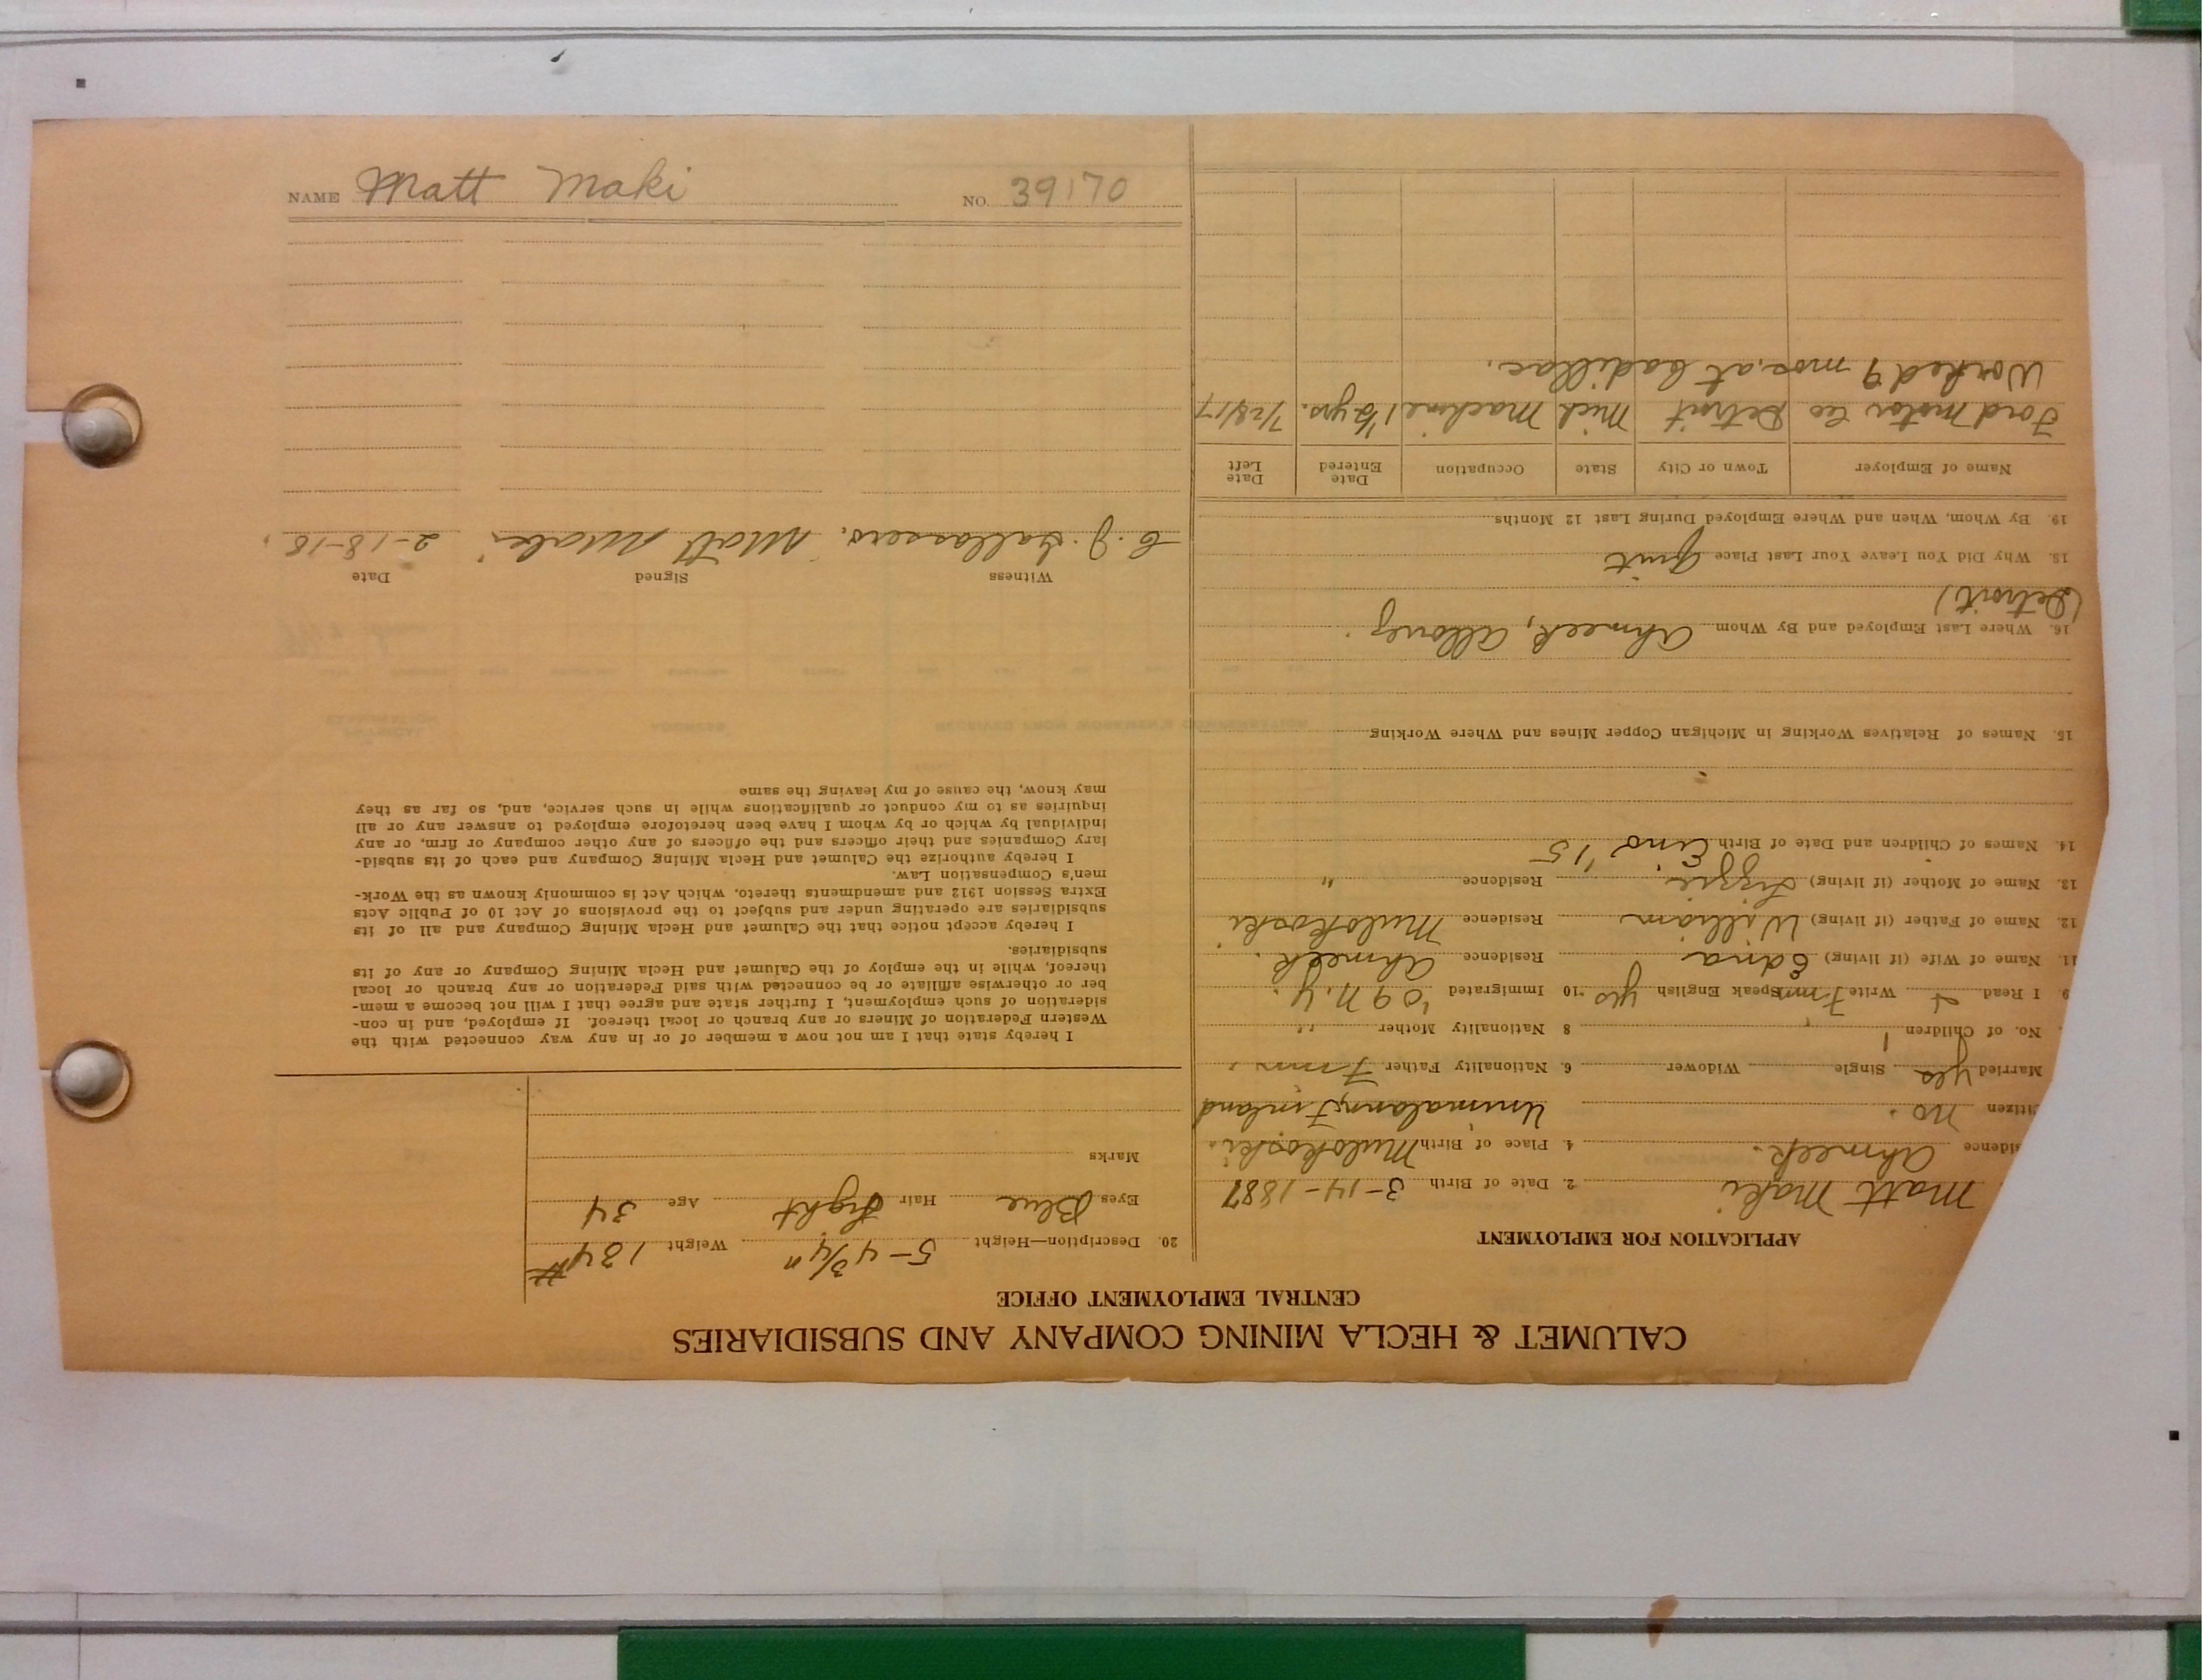 CALUMET & HECLA MINING COMPANY AND SUBSIDIARIES
CENTRAL EMPLOYMENT OFFICE
APPLICATION FOR EMPLOYMENT
Matt Maki 2. Date of Birth 3-14-1887
sidence Ahmeek. 4. Place of Birth Muolokoski.
itizen no. Finland
Married yes Single Widower 6. Nationality Father Finn
No. of Children 1 8 Nationality Mother "
9 I Read & Write Finn Speak English yes 10 Immigrated '09 N.Y.
11. Name of Wife (if living) Edna Residence Ahmeek.
12. Name of Father (if living) William Residence Muolokoski
13. Name of Mother (if living) Lizzie. Residence "
14. Names of Children and Date of Birth Eino '15
15. Names of Relatives Working in Michigan Copper Mines and Where Working
16. Where Last Employed and By Whom Ahmeek, Allouez.
(Detroit)
18. Why Did You Leave Your Last Place Quit
19. By Whom, When and Where Employed During Last 12 Months
Name of Employer Town or City State Occupation Date Entered Date Left
Ford Motor Co Detroit Mich Machine 1½ yrs. 7/28/17
Worked 9 mos. at Cadillac.
20. Description—Height 5-4 3/4" Weight 134#
Eyes Blue Hair Light Age 34
Marks
I hereby state that I am not now a member of or in any way connected with the
Western Federation of Miners or any branch or local thereof. If employed, and in con-
sideration of such employment, I further state and agree that I will not become a mem-
ber or otherwise affiliate or be connected with said Federation or any branch or local
thereof, while in the employ of the Calumet and Hecla Mining Company or any of its
subsidiaries.
I hereby accept notice that the Calumet and Hecla Mining Company and all of its
subsidiaries are operating under and subject to the provisions of Act 10 of Public Acts
Extra Session 1912 and amendments thereto, which Act is commonly known as the Work-
men's Compensation Law.
I hereby authorize the Calumet and Hecla Mining Company and each of its subsid-
iary Companies and their officers and the officers of any other company or firm, or any
individual by which or by whom I have been heretofore employed to answer any or all
inquiries as to my conduct or qualifications while in such service, and, so far as they
may know, the cause of my leaving the same
Witness Signed Date
Matt 2-18-18
NAME Matt Maki NO. 39170